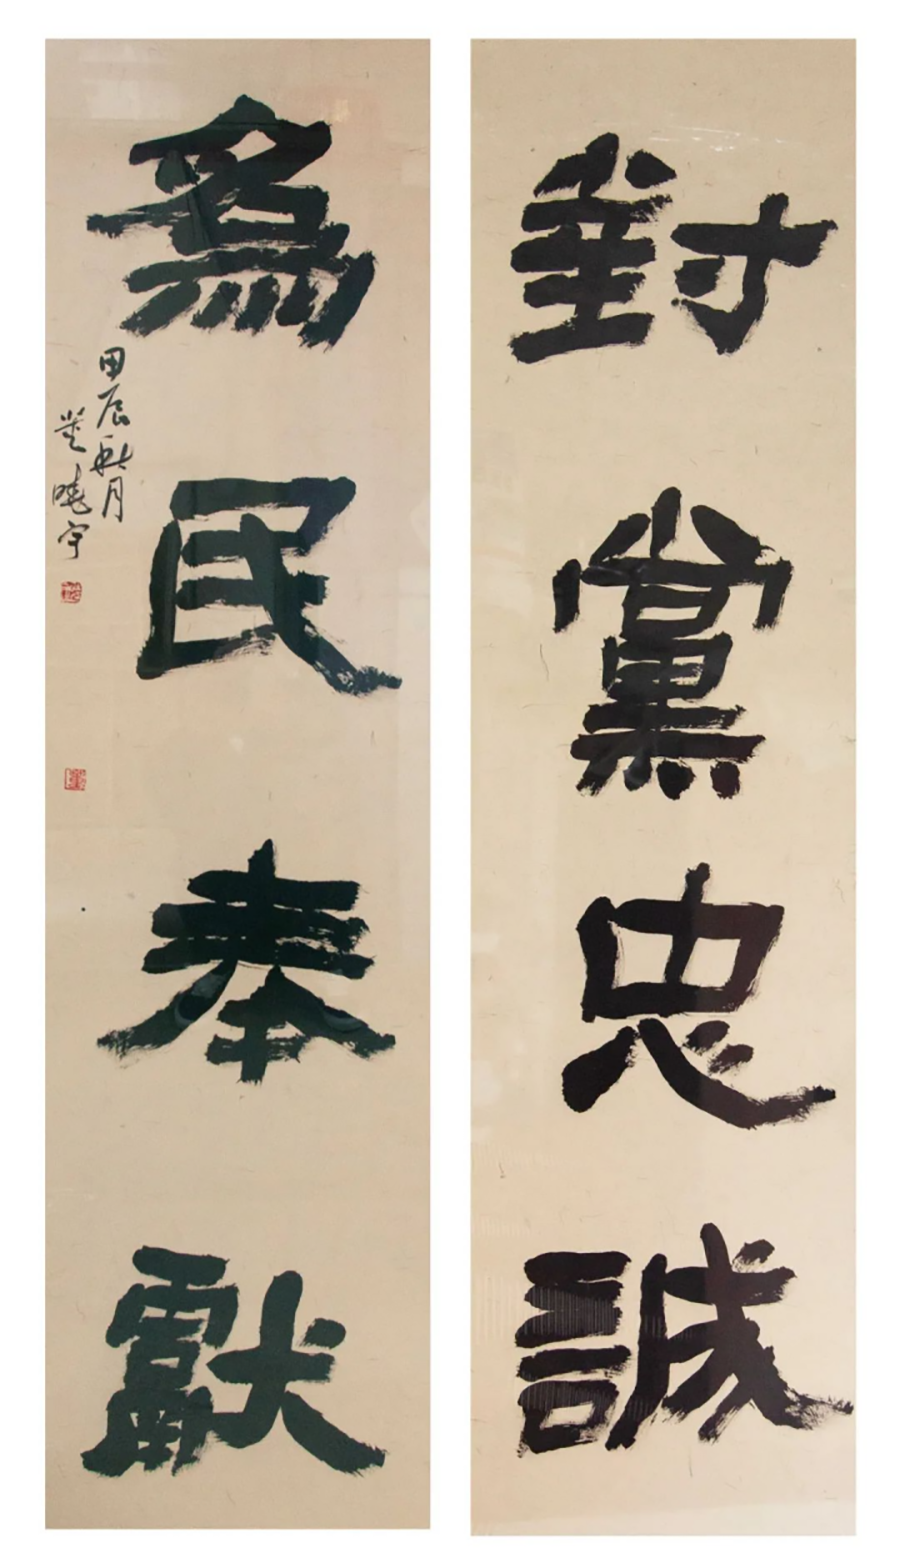 對黨忠誠
為民奉獻
甲辰秋月
曉宇